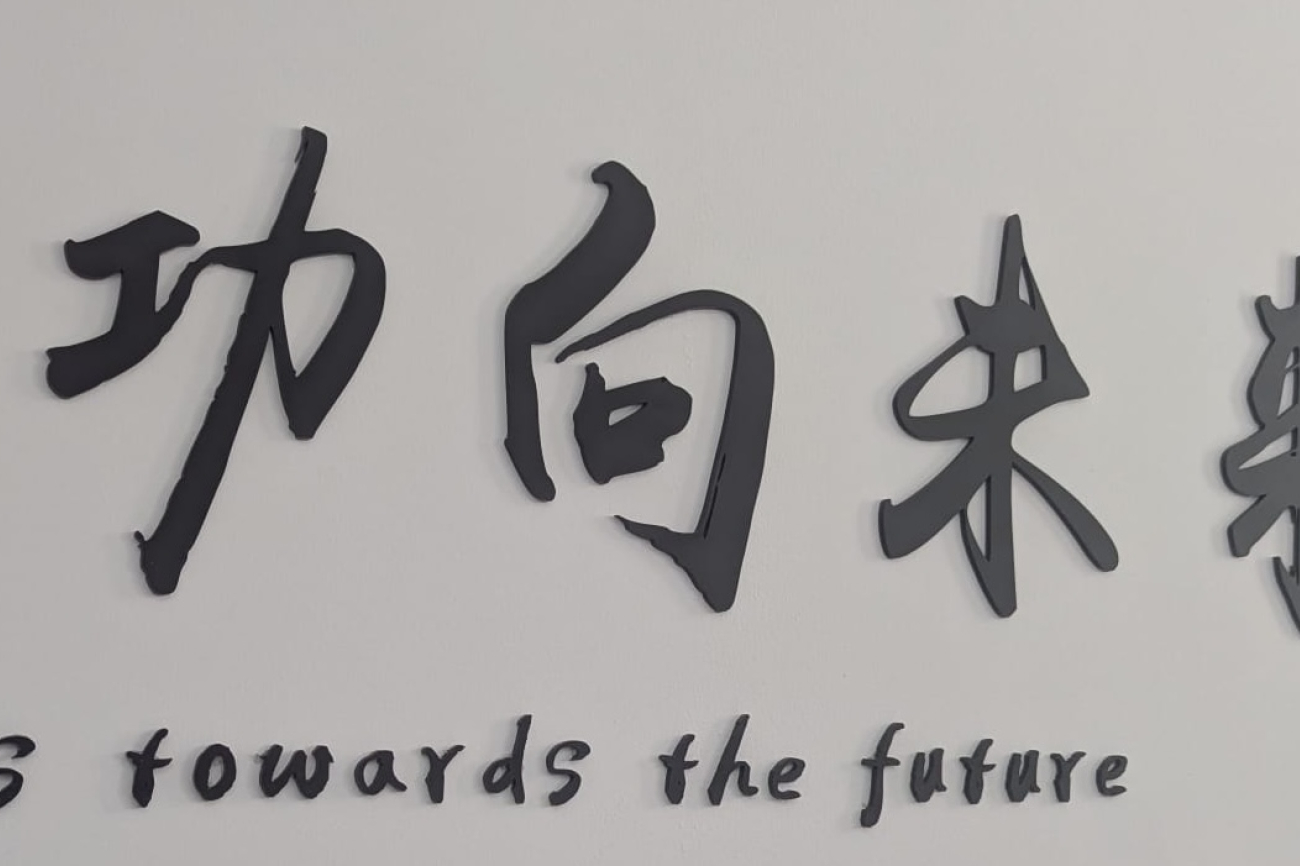 功向未
s towards the future